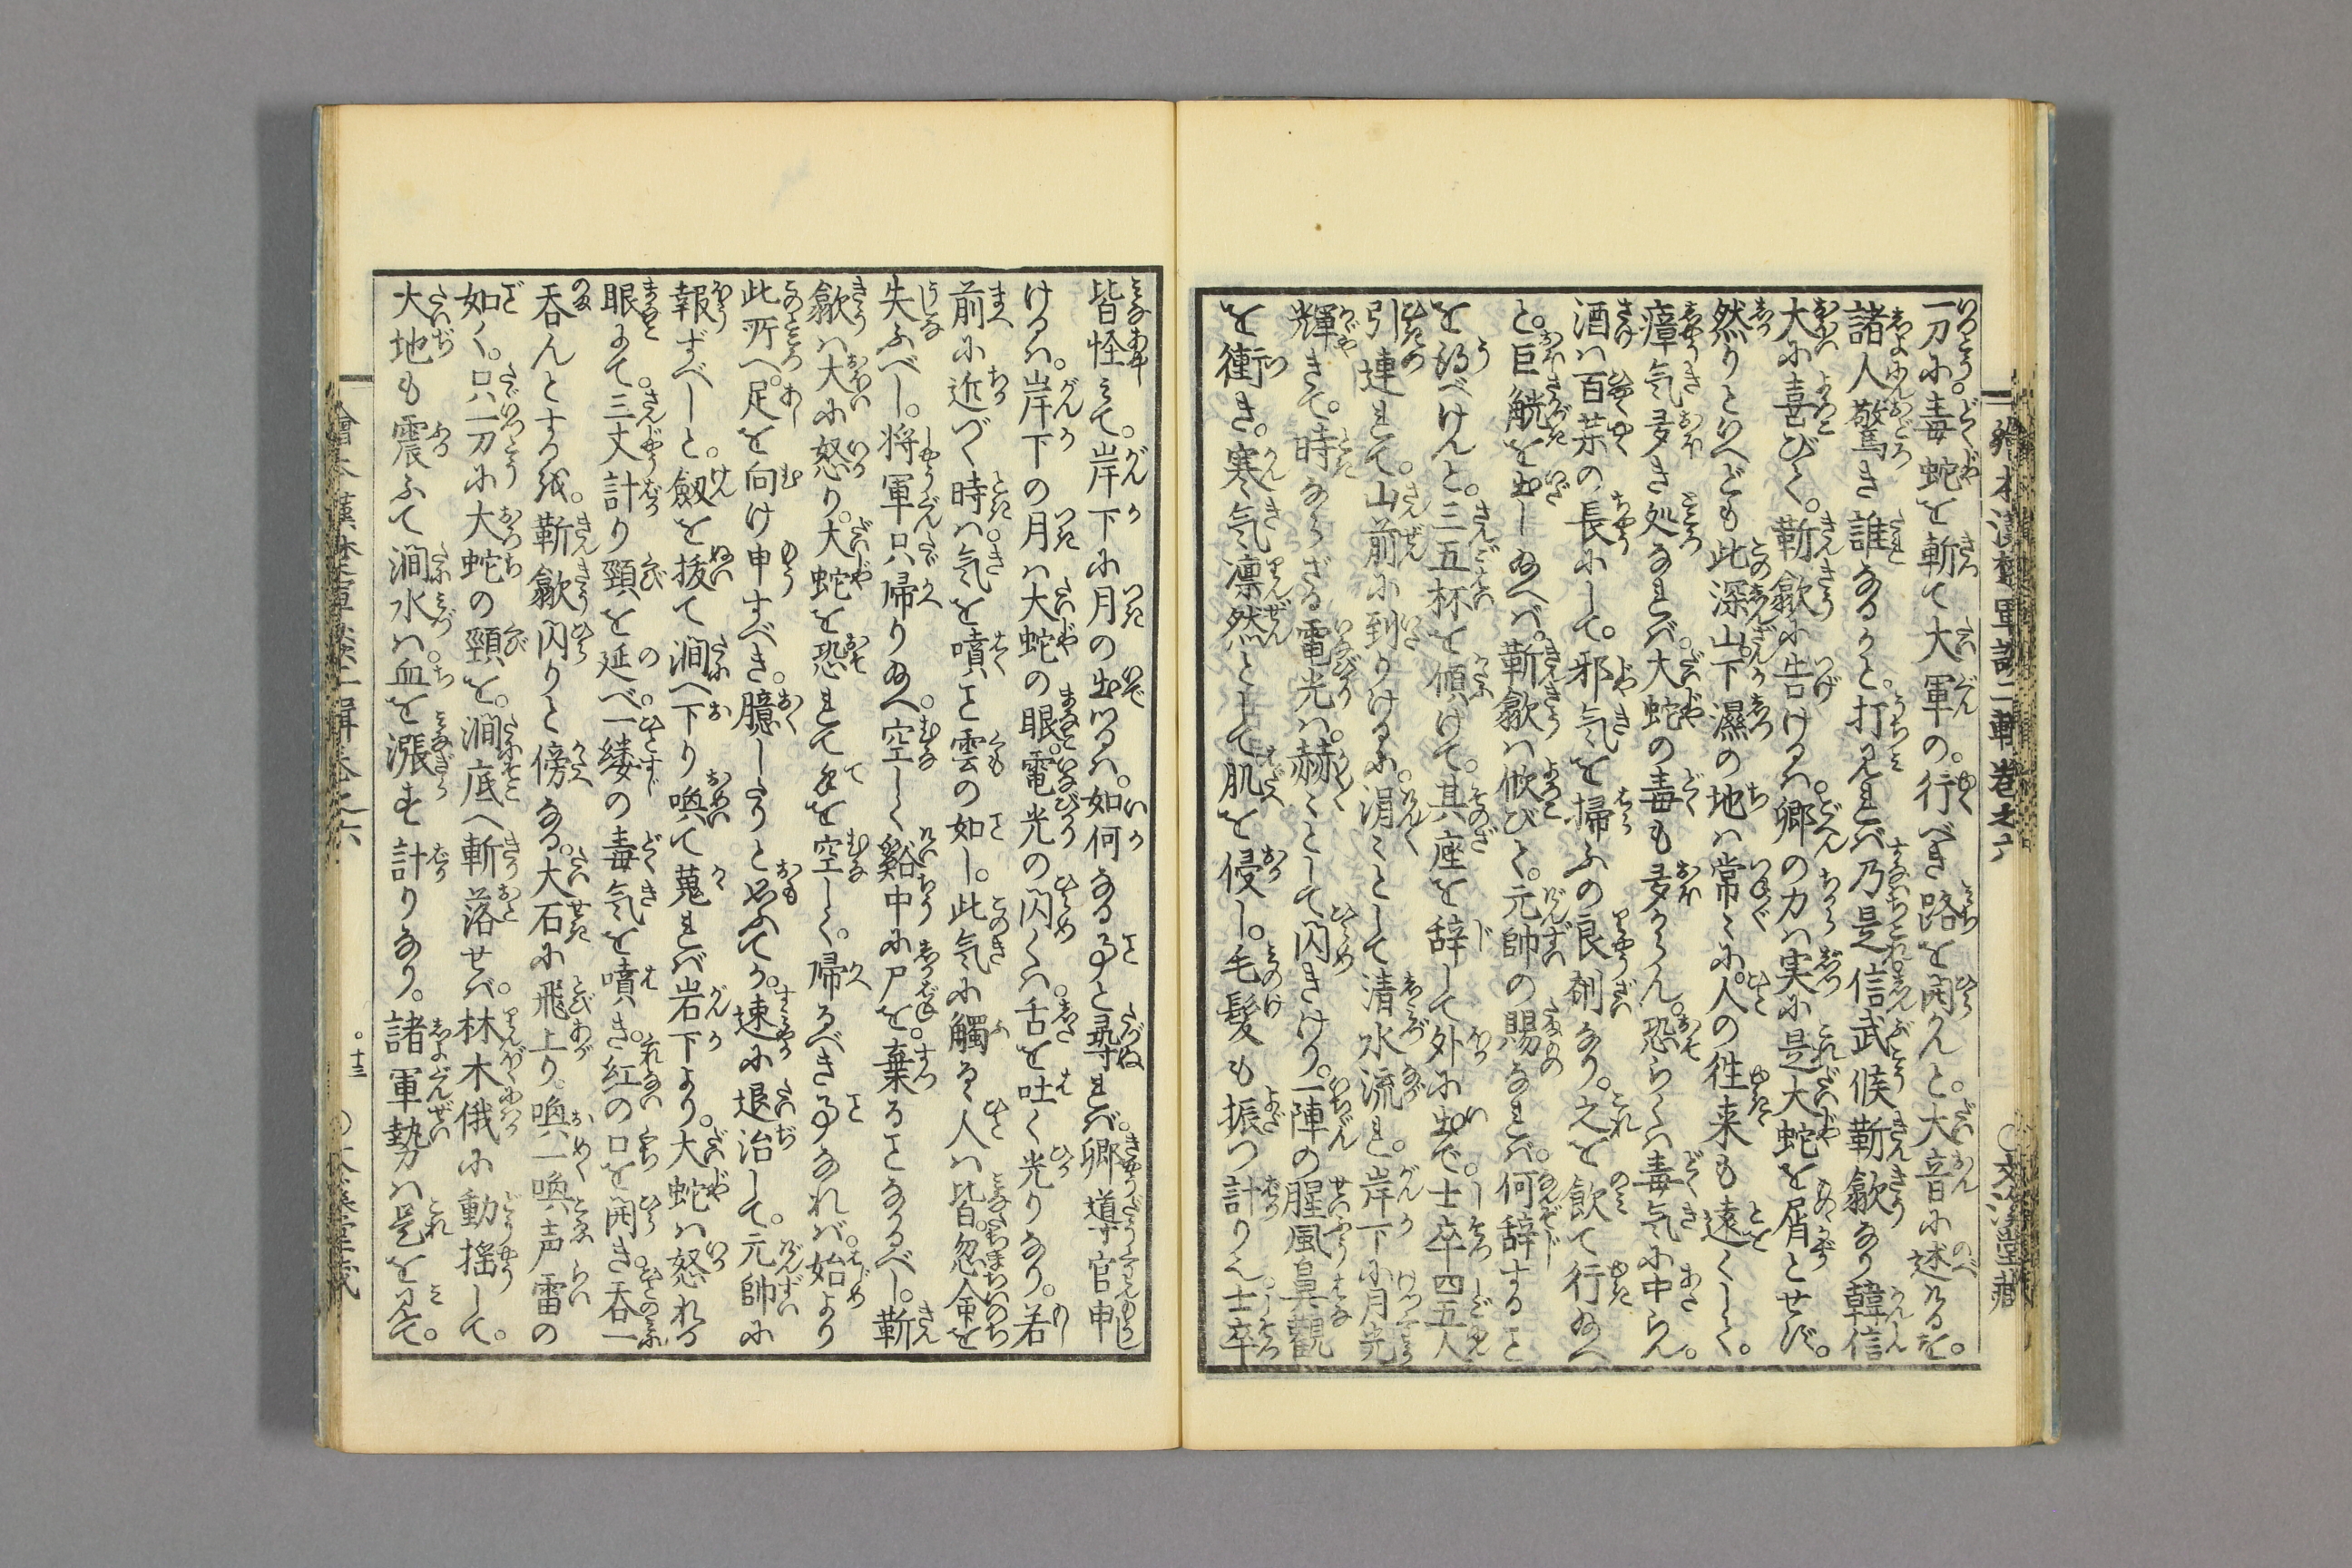 一刀に毒蛇を斬て大軍の。行べき路を開かんと。大音に述けるを。
諸人驚き誰なるかと。打見れば乃是信武候靳歙なり韓信
大に喜びて。靳歙に告けるハ卿の力ハ実に是大蛇を屑とせず。
然りといへども此深山下濕の地ハ常々に。人の徃来も遠くして。
瘴気多き処なれバ大蛇の毒も多からん。恐らくハ毒気に中らん。
酒ハ百茶の長にして。邪気を掃ふの良剤なり。之を飲て行給へ
と。巨觥を出し給へバ。靳歙ハ欣びて。元帥の賜なれバ。何辞すること
を得べけんと。三五杯を傾けて。其座を辞して外に出で。士卒四五人
引連れて。山前に到りけるに。涓々として清水流れ。岸下に月光
輝きて。時ならざる電光ハ。赫々として閃きけり。一陣の腥風鼻觀
を衝き。寒気凛然として肌を侵し。毛髪も振つ計りに。士卒
皆怪みて。岸下に月の出つるハ。如何なる事と尋れバ。卿導官申
けるハ。岸下の月ハ大蛇の眼。電光の閃くハ。舌を吐く光りなり。若
前に近づく時ハ。気を噴こと雲の如し。此気に觸るゝ人ハ皆。忽命を
失ふべし。将軍只帰り給へ。空しく谿中に尸を。棄ることなるべし。靳
歙ハ大に怒り。大蛇を恐れて手を空しく。帰るべき事なれバ。始より
此所へ。足を向け申すべき。臆したりと思ふてか。速に退治して。元帥に
報ずべしと。劔を抜て澗へ下り喚て蒐れバ岩下より。大蛇ハ怒れる
眼にて。三丈計り頸を延べ。一縷の毒気を噴き。紅の口を開き。呑一
呑んとするを。靳歙閃りと傍なる。大石に飛上り。喚一喚声雷の
如く。只一刀に大蛇の頸を。澗底へ斬落せバ。林木俄に動揺して。
大地も震ふて澗水ハ。血を漲す計りなり。諸軍勢ハ是を見て。
繪本漢楚軍談二輯巻之六
十三